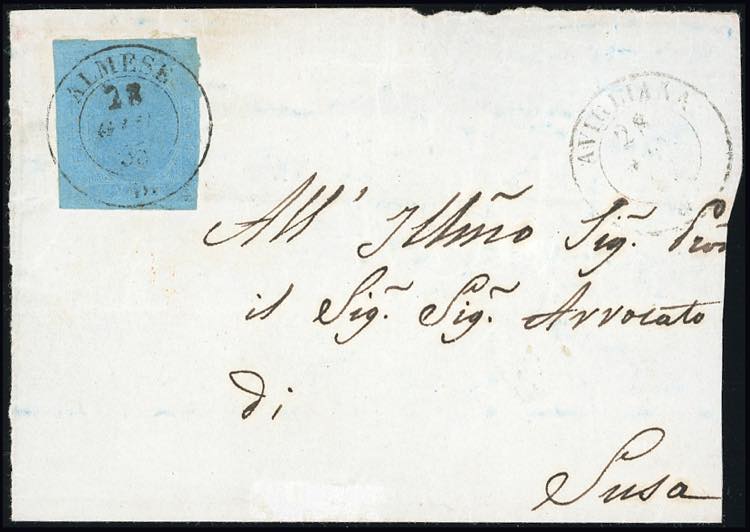 ALMESE
28
53
AVIGLIANA
28
All' Illmo Sig.
il Sig. Sig. Avvocato
di
Susa